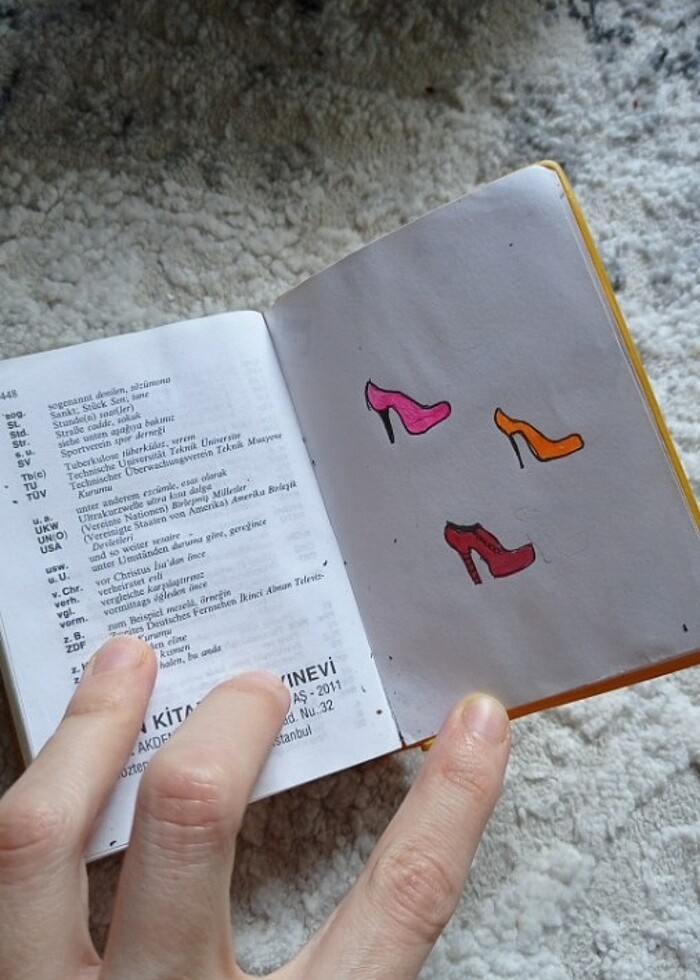 448
sog. sogenannt denilen, sözümona
St. Sankt; Stück Sen; tane
Std. Stunde(n) saat(ler)
Str. Straße cadde, sokak
s. u. siehe unten aşağıya bakınız
SV Sportverein spor derneği
Tb(c) Tuberkulose tüberküloz, verem
TU Technische Universität Teknik Üniversite
TÜV Technischer Überwachungsverein Teknik Muayene
Kurumu
u. a. unter anderem ezcümle, esas olarak
UKW Ultrakurzwelle ultra kısa dalga
UN(O) (Vereinte Nationen) Birleşmiş Milletler
USA (Vereinigte Staaten von Amerika) Amerika Birleşik
Devletleri
usw. und so weiter vesaire
u. U. unter Umständen duruma göre, gereğince
v. Chr. vor Christus İsa'dan önce
verh. verheiratet evli
vgl. vergleiche karşılaştırınız
vorm. vormittags öğleden önce
z. B. zum Beispiel meselâ, örneğin
ZDF Zweites Deutsches Fernsehen İkinci Alman Televiz-
Kurumu
eline
kısmen
halen, bu anda
YINEVİ
AŞ - 2011
Nu.:32